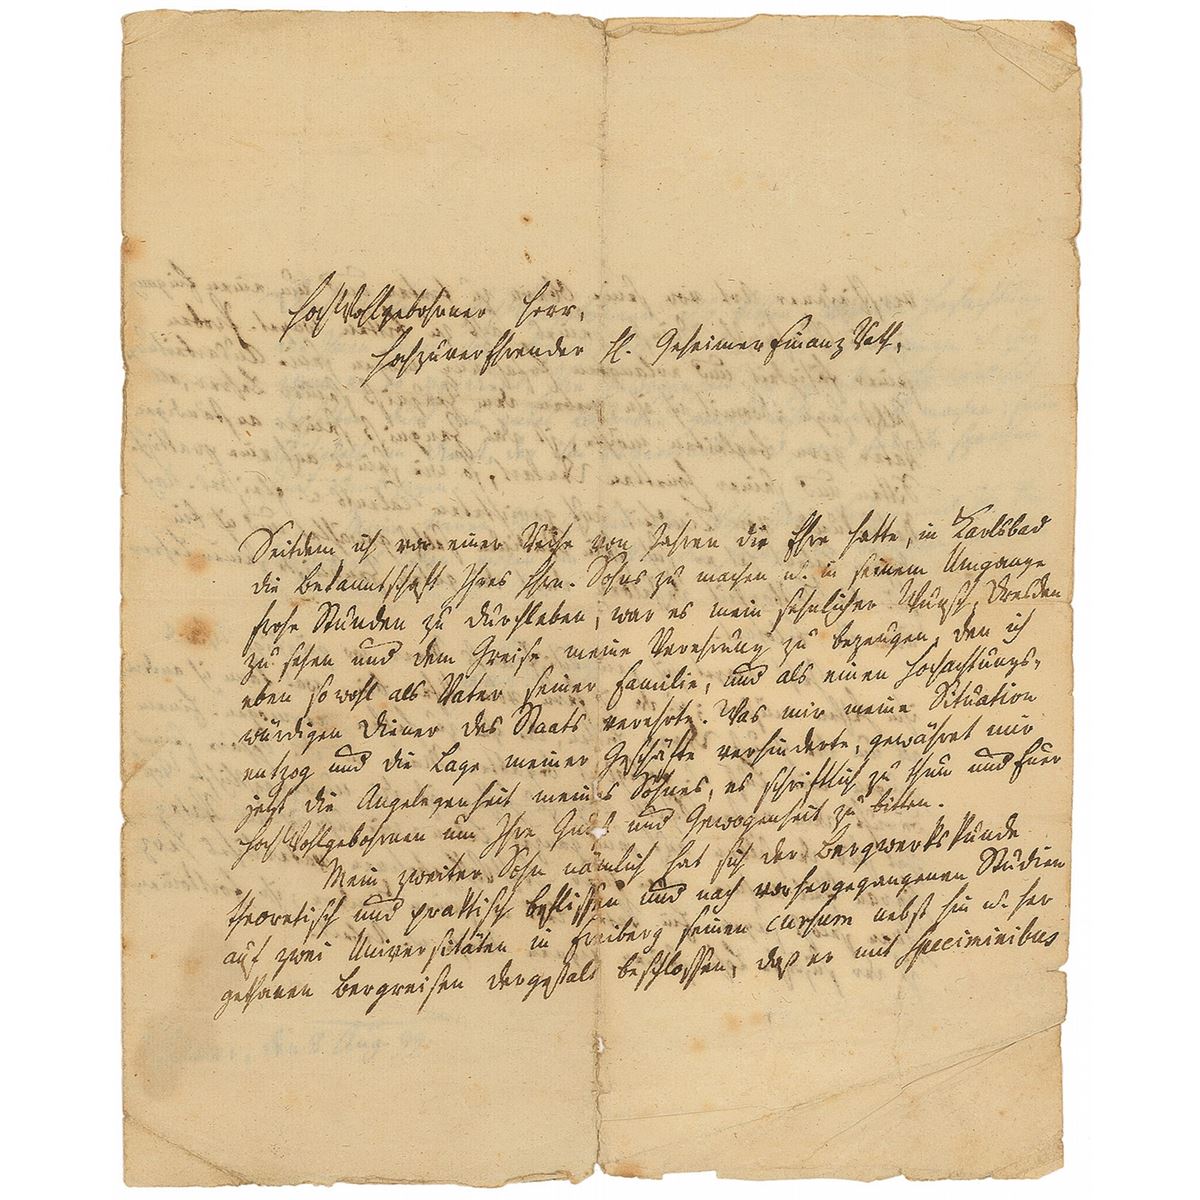 HochWohlgebohrner Herr,
Hochzuverehrender H. Geheimer Finanz Rath,
Seitdem ich vor einer Reihe von Jahren die Ehre hatte, in Karlsbad
die Bekanntschaft Ihres Hrn. Sohns zu machen u. in seinem Umgange
frohe Stunden zu durchleben, war es mein sehnlicher Wunsch, Dresden
zu sehen und dem Greise meine Verehrung zu bezeugen, den ich
eben so wohl als Vater seiner Familie, und als einen hochachtungs-
würdigen Diener des Staats verehrte. Was mir meine Situation
entzog und die Lage meiner Geschäfte verhinderte, gewähret mir
jetzt die Angelegenheit meines Sohnes, es schriftlich zu thun und Euer
HochWohlgebohrnen um Ihre Güte und Gewogenheit zu bitten.
Mein zweiter Sohn nämlich hat sich der Bergwerkskunde
theoretisch und praktisch beflissen und nach vorhergegangenen Studien
auf zwei Universitäten in Freiberg seinen cursum nebst hin u. her
gethanen Bergreisen dergestalt beschlossen, daß er mit speciminibus